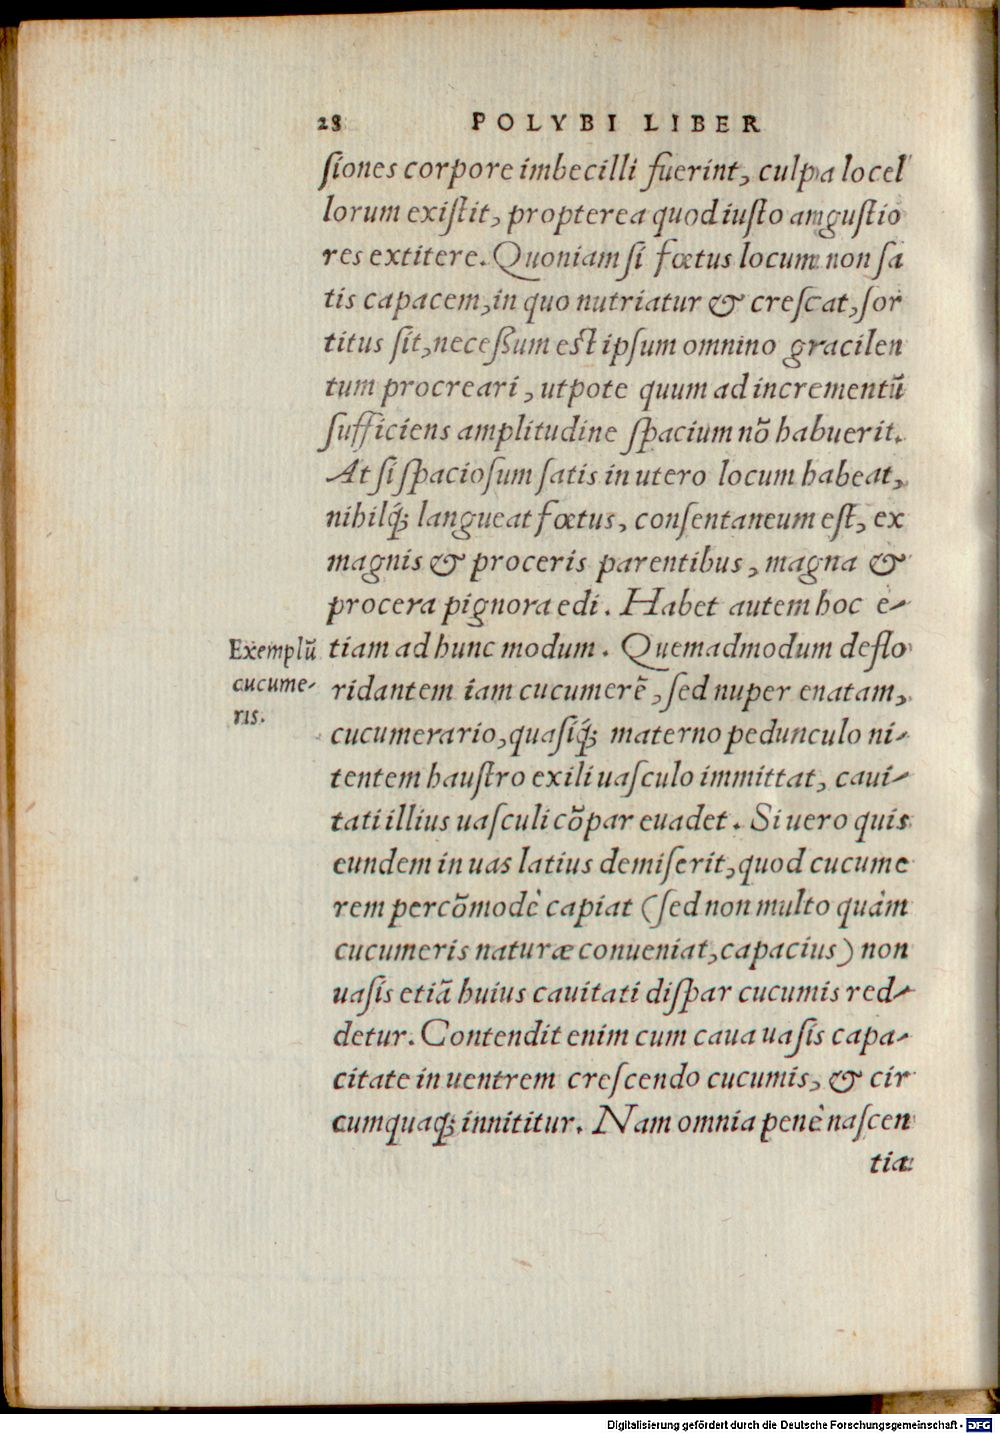 28 POLYBI LIBER
ſiones corpore imbecilli fuerint, culpa locel
lorum exiſtit, propterea quod iuſto anguſtio
res extitere. Quoniam ſi fœtus locum non ſa
tis capacem, in quo nutriatur & creſcat, ſor
titus ſit, neceſſum eſt ipſum omnino gracilen
tum procreari, utpote quum ad incrementũ
ſufficiens amplitudine ſpacium nõ habuerit.
At ſi ſpacioſum ſatis in utero locum habeat,
nihilq́; langueat fœtus, conſentaneum eſt, ex
magnis & proceris parentibus, magna &
procera pignora edi. Habet autem hoc e-
tiam ad hunc modum. Quemadmodum deflo
Exemplũ
cucume-
ris.
ridantem iam cucumerẽ, ſed nuper enatam,
cucumerario, quaſiq́; materno pedunculo ni-
tentem hauſtro exili uaſculo immittat, caui-
tati illius uaſculi cõpar euadet. Si uero quis
eundem in uas latius demiſerit, quod cucume
rem percõmodè capiat (ſed non multo quàm
cucumeris naturæ conueniat, capacius) non
uaſis etiã huius cauitati diſpar cucumis red-
detur. Contendit enim cum caua uaſis capa-
citate in uentrem creſcendo cucumis, & cir
cumquaq; innititur. Nam omnia penè naſcen
tia
Digitalisierung gefördert durch die Deutsche Forschungsgemeinschaft - DFG